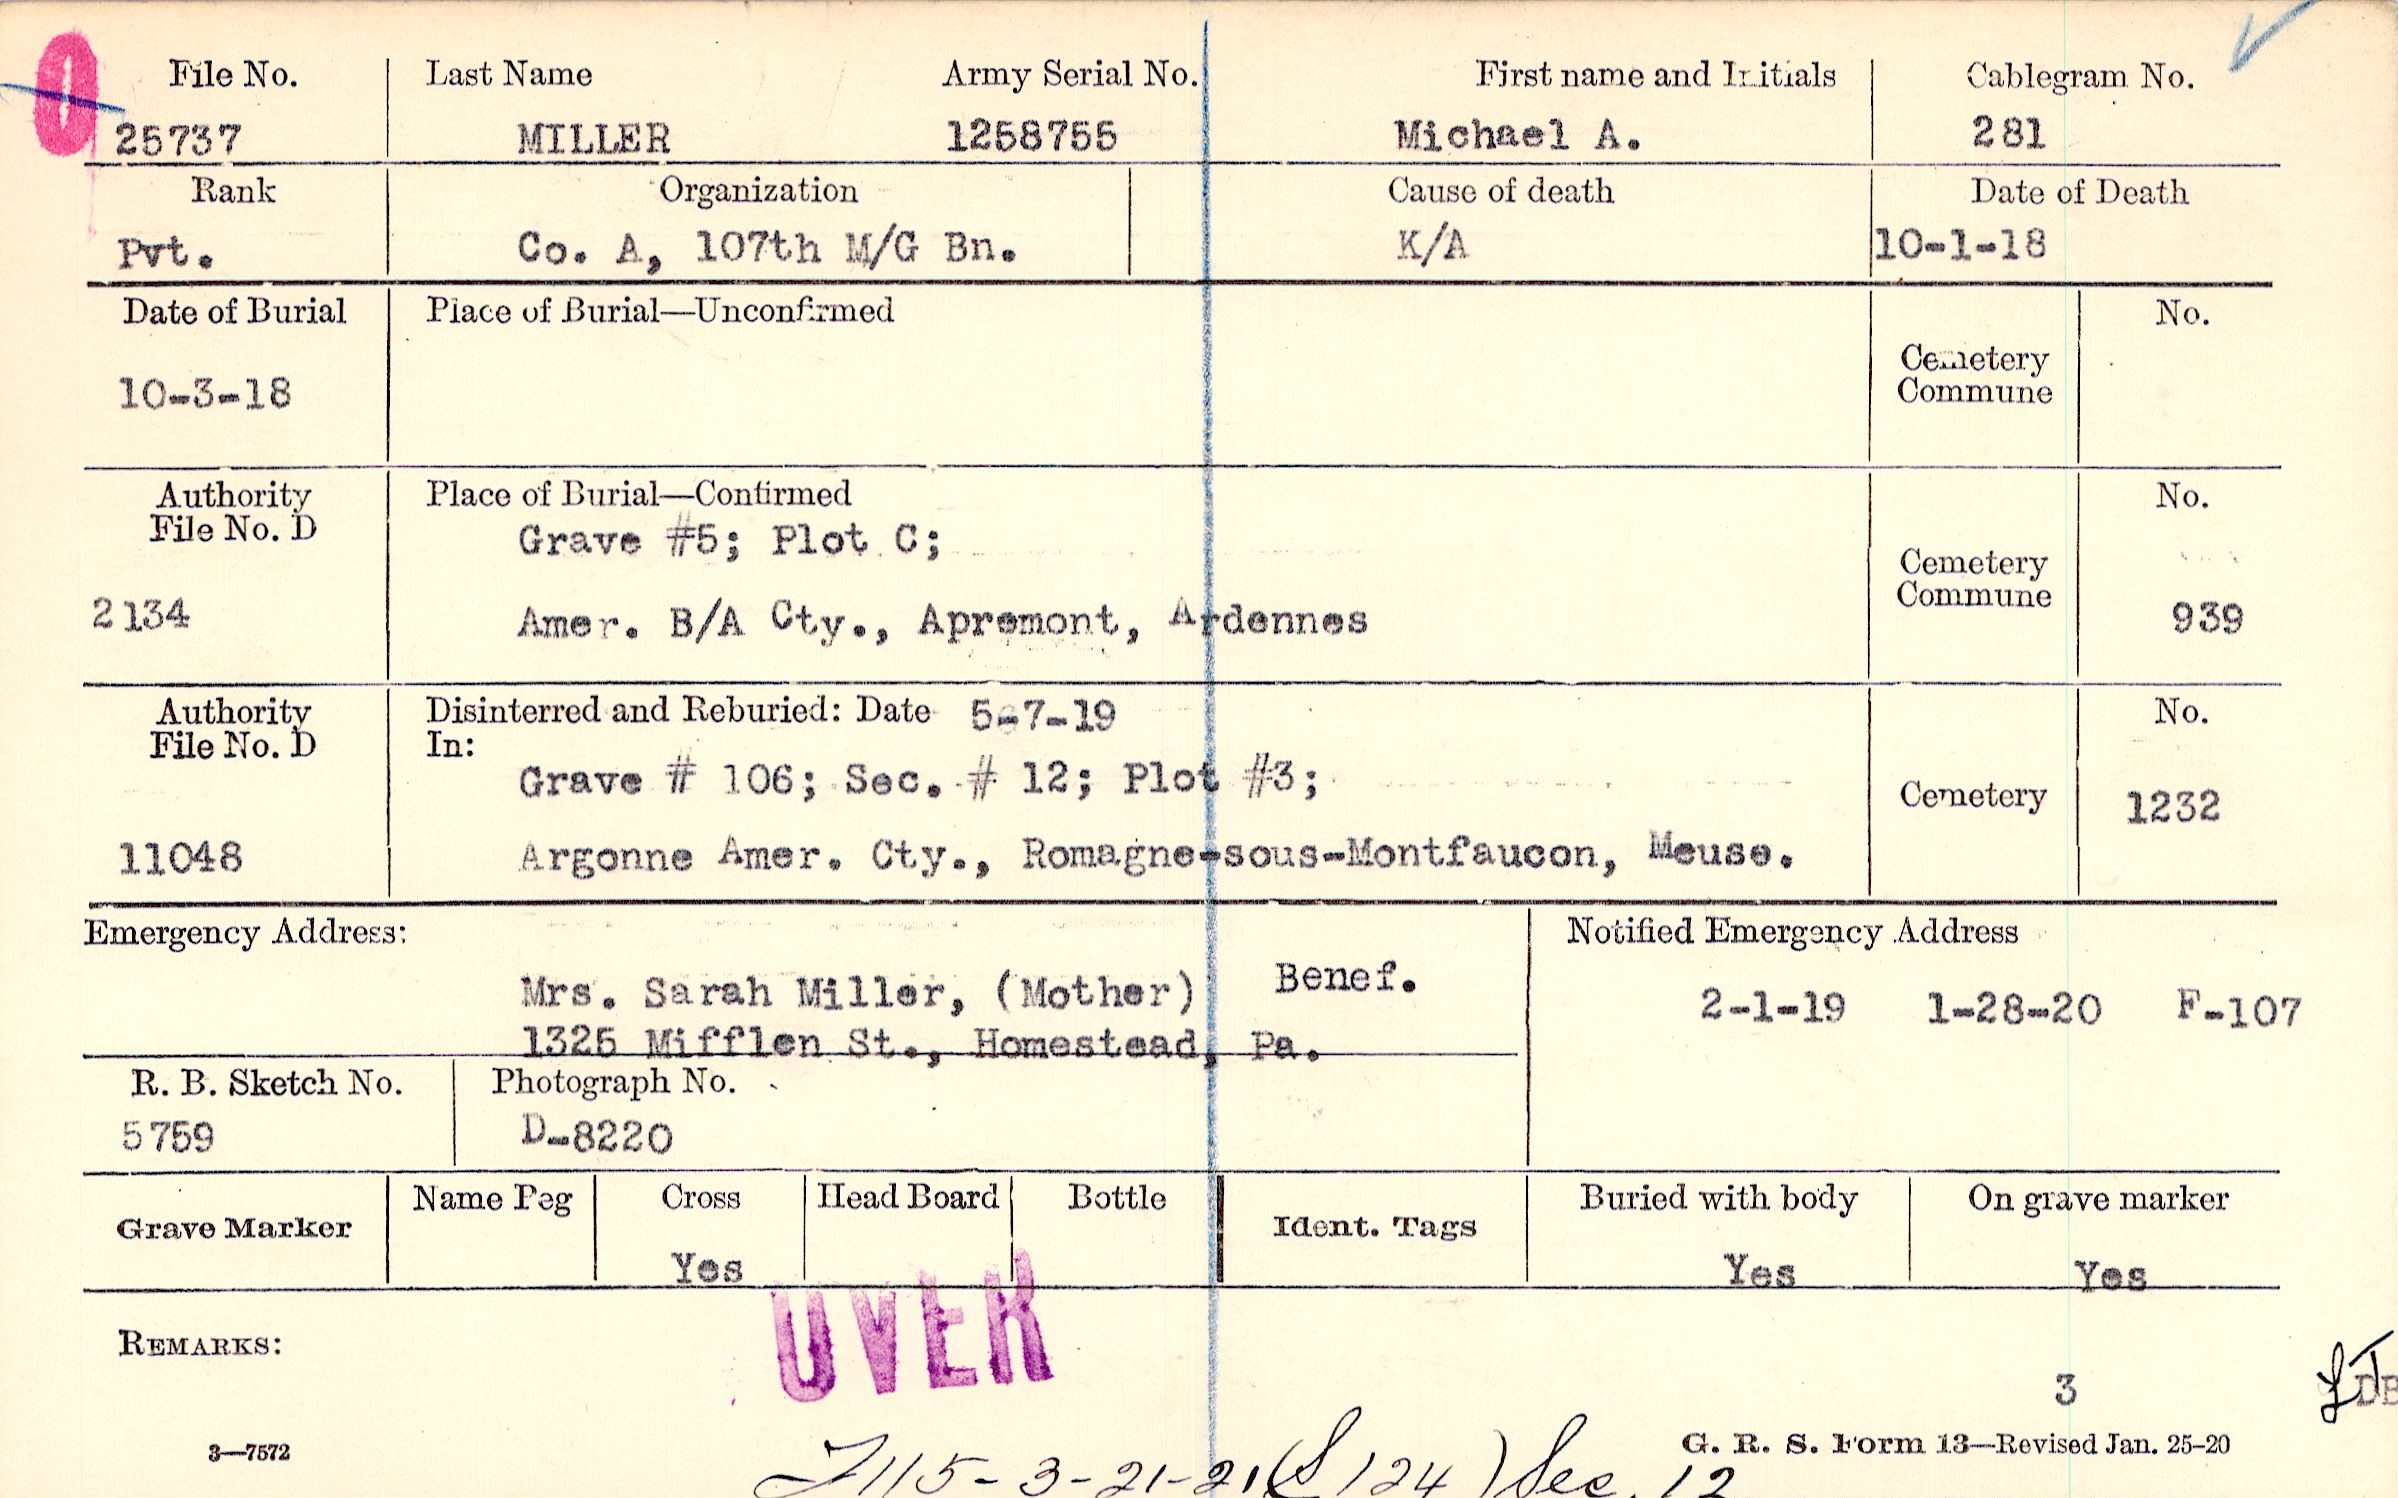 File No. Last Name Army Serial No. First name and Initials Cablegram No.
25737 MILLER 1258755 Michael A. 281
Rank Organization Cause of death Date of Death
Pvt. Co. A, 107th M/G Bn. K/A 10-1-18
Date of Burial Place of Burial—Unconfirmed No.
Cemetery
Commune
10-3-18
Authority Place of Burial—Confirmed No.
File No. D
Grave #5; Plot C;
Cemetery
Commune
2134 Amer. B/A Cty., Apremont, Ardennes 939
Authority Disinterred and Reburied: Date 5-7-19 No.
File No. D In:
Grave # 106; Sec. # 12; Plot #3;
Cemetery 1232
11048 Argonne Amer. Cty., Romagne-sous-Montfaucon, Meuse.
Emergency Address: Notified Emergency Address
Mrs. Sarah Miller, (Mother) Benef. 2-1-19 1-28-20 F-107
1325 Mifflen St., Homestead, Pa.
R. B. Sketch No. Photograph No.
5759 D-8220
Grave Marker Name Peg Cross Head Board Bottle Ident. Tags Buried with body On grave marker
Yes Yes Yes
OVER
REMARKS:
3
3—7572 G. R. S. Form 13—Revised Jan. 25-20
F115-3-21-21 (S124) Sec. 12